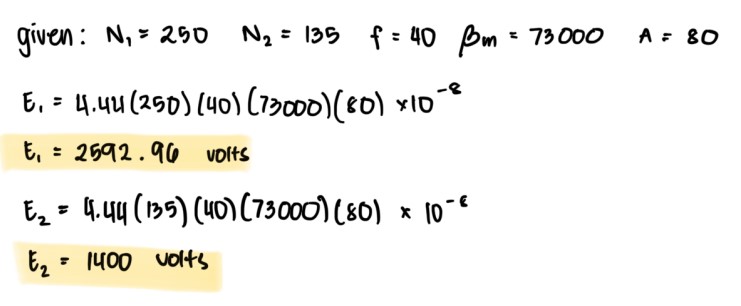 given: N₁ = 250 N₂ = 135 f = 40 βm = 73000 A = 80
E₁ = 4.44(250)(40)(73000)(80) ×10⁻⁸
E₁ = 2592.96 volts
E₂ = 4.44(135)(40)(73000)(80) × 10⁻⁸
E₂ = 1400 volts